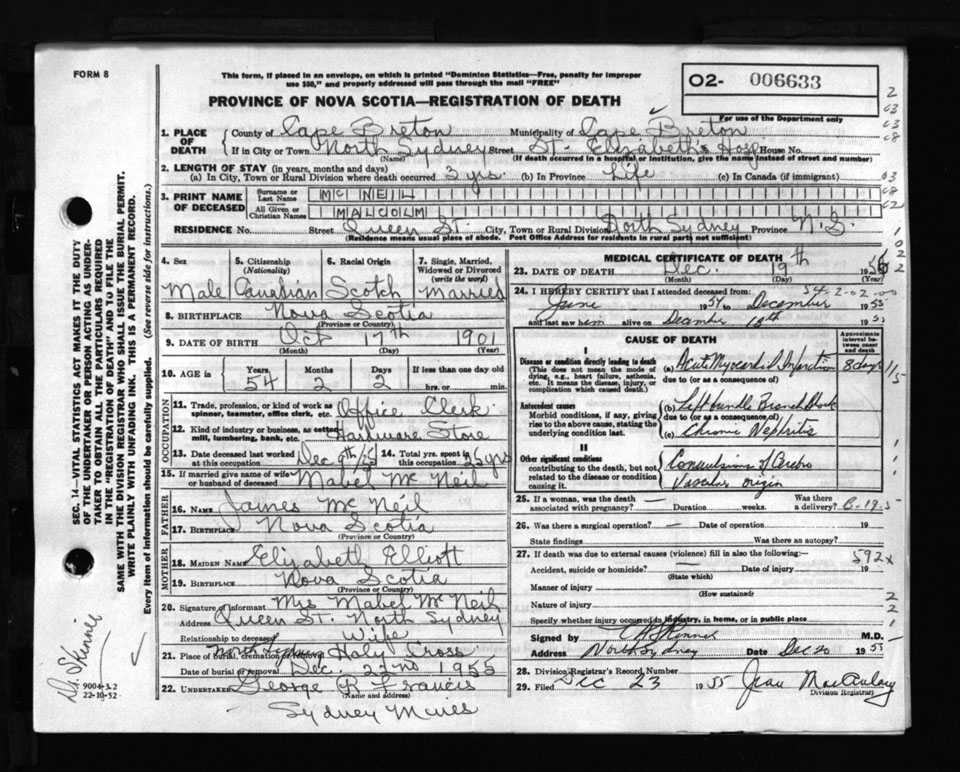 FORM 8
This form, if placed in an envelope, on which is printed "Dominion Statistics—Free, penalty for improper
use $50," and properly addressed will pass through the mail "FREE"
O2- 006633
For use of the Department only
PROVINCE OF NOVA SCOTIA—REGISTRATION OF DEATH
1. PLACE OF DEATH
County of Cape Breton Municipality of Cape Breton
If in City or Town North Sydney Street St. Elizabeth's Hosp House No.
(Name) (If death occurred in a hospital or institution, give the name instead of street and number)
2. LENGTH OF STAY (in years, months and days)
(a) In City, Town or Rural Division where death occurred 3 yrs. (b) In Province Life (c) In Canada (if immigrant)
3. PRINT NAME OF DECEASED
Surname or Last Name MC NEIL
All Given or Christian Names MALCOLM
RESIDENCE No. Street Queen St. City, Town or Rural Division North Sydney Province N.S.
(Residence means usual place of abode. Post Office Address for residents in rural parts not sufficient)
4. Sex Male
5. Citizenship (Nationality) Canadian
6. Racial Origin Scotch
7. Single, Married, Widowed or Divorced (write the word) Married
8. BIRTHPLACE Nova Scotia
(Province or Country)
9. DATE OF BIRTH Oct 17th 1901
(Month) (Day) (Year)
10. AGE is Years 54 Months 2 Days 2 If less than one day old hrs. or min.
OCCUPATION
11. Trade, profession, or kind of work as spinner, teamster, office clerk, etc. Office Clerk
12. Kind of industry or business, as cotton mill, lumbering, bank, etc. Hardware Store
13. Date deceased last worked at this occupation Dec 9th/55
14. Total yrs. spent in this occupation 25 yrs
15. If married give name of wife or husband of deceased Mabel Mc Neil
FATHER
16. NAME James Mc Neil
17. BIRTHPLACE Nova Scotia
(Province or Country)
MOTHER
18. MAIDEN NAME Elizabeth Elliott
19. BIRTHPLACE Nova Scotia
(Province or Country)
20. Signature of informant Mrs Mabel Mc Neil
Address Queen St. North Sydney
Relationship to deceased Wife
21. Place of burial, cremation or removal North Sydney Holy Cross
Date of burial or removal Dec. 22nd 1955
22. UNDERTAKER George R Francis
(Name and address)
Sydney Mines
MEDICAL CERTIFICATE OF DEATH
23. DATE OF DEATH Dec. 19th 195
(Month) (Day) (Year)
24. I HEREBY CERTIFY that I attended deceased from:
54-2-02-00
June 1954 to December 1955
and last saw him alive on December 18th 1955
CAUSE OF DEATH
Approximate interval between onset and death
I
Disease or condition directly leading to death
(This does not mean the mode of dying, e.g., heart failure, asthma, etc. It means the disease, injury, or complication which caused death.)
(a) Acute Myocardial Infarction 8 days
due to (or as a consequence of)
Antecedent causes
Morbid conditions, if any, giving rise to the above cause, stating the underlying condition last.
(b) Left bundle Branch Block
due to (or as a consequence of)
(c) Chronic Nephritis
II
Other significant conditions
contributing to the death, but not related to the disease or condition causing it.
Convulsions of Cerebro
Vascular origin
25. If a woman, was the death associated with pregnancy? — Duration weeks. Was there a delivery?
B-19-5
26. Was there a surgical operation? — Date of operation 19
State findings Was there an autopsy?
27. If death was due to external causes (violence) fill in also the following:—
592x
Accident, suicide or homicide? Date of injury 19
(State which)
Manner of injury
(How sustained)
Nature of injury
Specify whether injury occurred in industry, in home, or in public place
Signed by Skinner M.D.
Address North Sydney Date Dec 20 1955
28. Division Registrar's Record Number
29. Filed Dec 23 1955 Jean MacAulay
Division Registrar
SEC. 14—VITAL STATISTICS ACT MAKES IT THE DUTY
OF THE UNDERTAKER OR PERSON ACTING AS UNDER-
TAKER TO OBTAIN ALL THE PARTICULARS REQUIRED
IN THE "REGISTRATION OF DEATH" AND TO FILE THE
SAME WITH THE DIVISION REGISTRAR WHO SHALL ISSUE THE BURIAL PERMIT.
WRITE PLAINLY WITH UNFADING INK. THIS IS A PERMANENT RECORD.
Every item of information should be carefully supplied. (See reverse side for instructions.)
Dr. Skinner
9004-3.2
22-10-'52